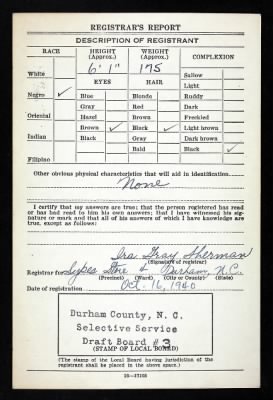 REGISTRAR'S REPORT
DESCRIPTION OF REGISTRANT
RACE HEIGHT (Approx.) WEIGHT (Approx.) COMPLEXION
6' 1" 175
White Sallow
EYES HAIR Light
Negro ✓ Blue Blonde Ruddy
Gray Red Dark
Oriental Hazel Brown Freckled
Brown ✓ Black ✓ Light brown
Indian Black Gray Dark brown
Bald Black ✓
Filipino
Other obvious physical characteristics that will aid in identification
None
I certify that my answers are true; that the person registered has read
or has had read to him his own answers; that I have witnessed his sig-
nature or mark and that all of his answers of which I have knowledge are
true, except as follows:
Ira Gray Sherman
(Signature of registrar)
Registrar for Sypes Store 4 Durham, N.C.
(Precinct) (Ward) (City or County) (State)
Date of registration Oct. 16, 1940
Durham County, N. C.
Selective Service
Draft Board # 3
(STAMP OF LOCAL BOARD)
(The stamp of the Local Board having jurisdiction of the
registrant shall be placed in the above space.)